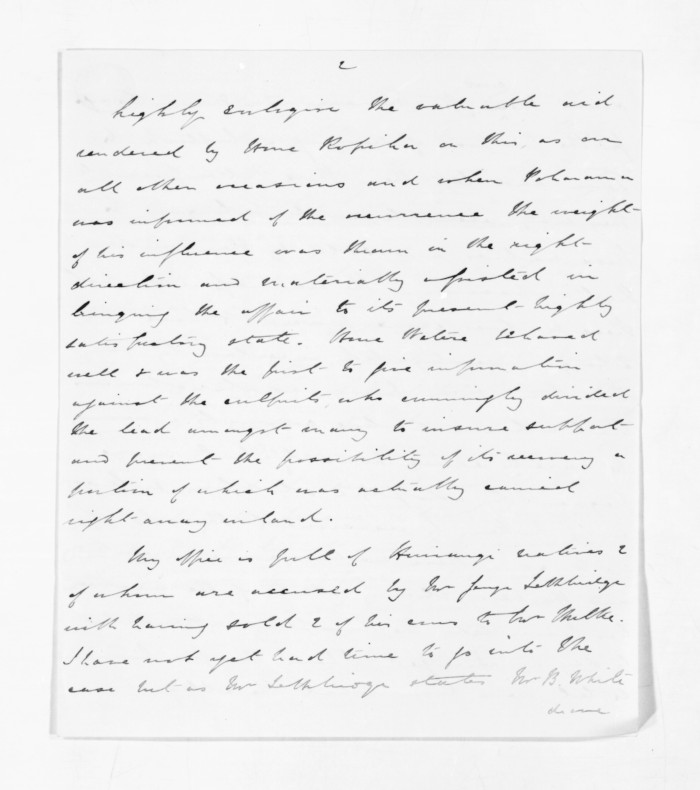 2
highly eulogise the valuable aid
rendered by Hone Ropiha on this as on
all other occasions and when
was informed of the occurrence the weight
of his influence was thrown in the right
direction and materially assisted in
bringing the affair to its present highly
satisfactory state. Hone behaved
well & was the first to give information
against the culprits who cunningly divided
the lead amongst many to insure support
and prevent the possibility of its recovery a
portion of which was actually carried
right away inland.
My office is full of natives 2
of whom are accused by Mr George Lethbridge
with having sold 2 of his cows to Mr
I have not yet had time to go into the
case but as Mr Lethbridge states Mr B. White